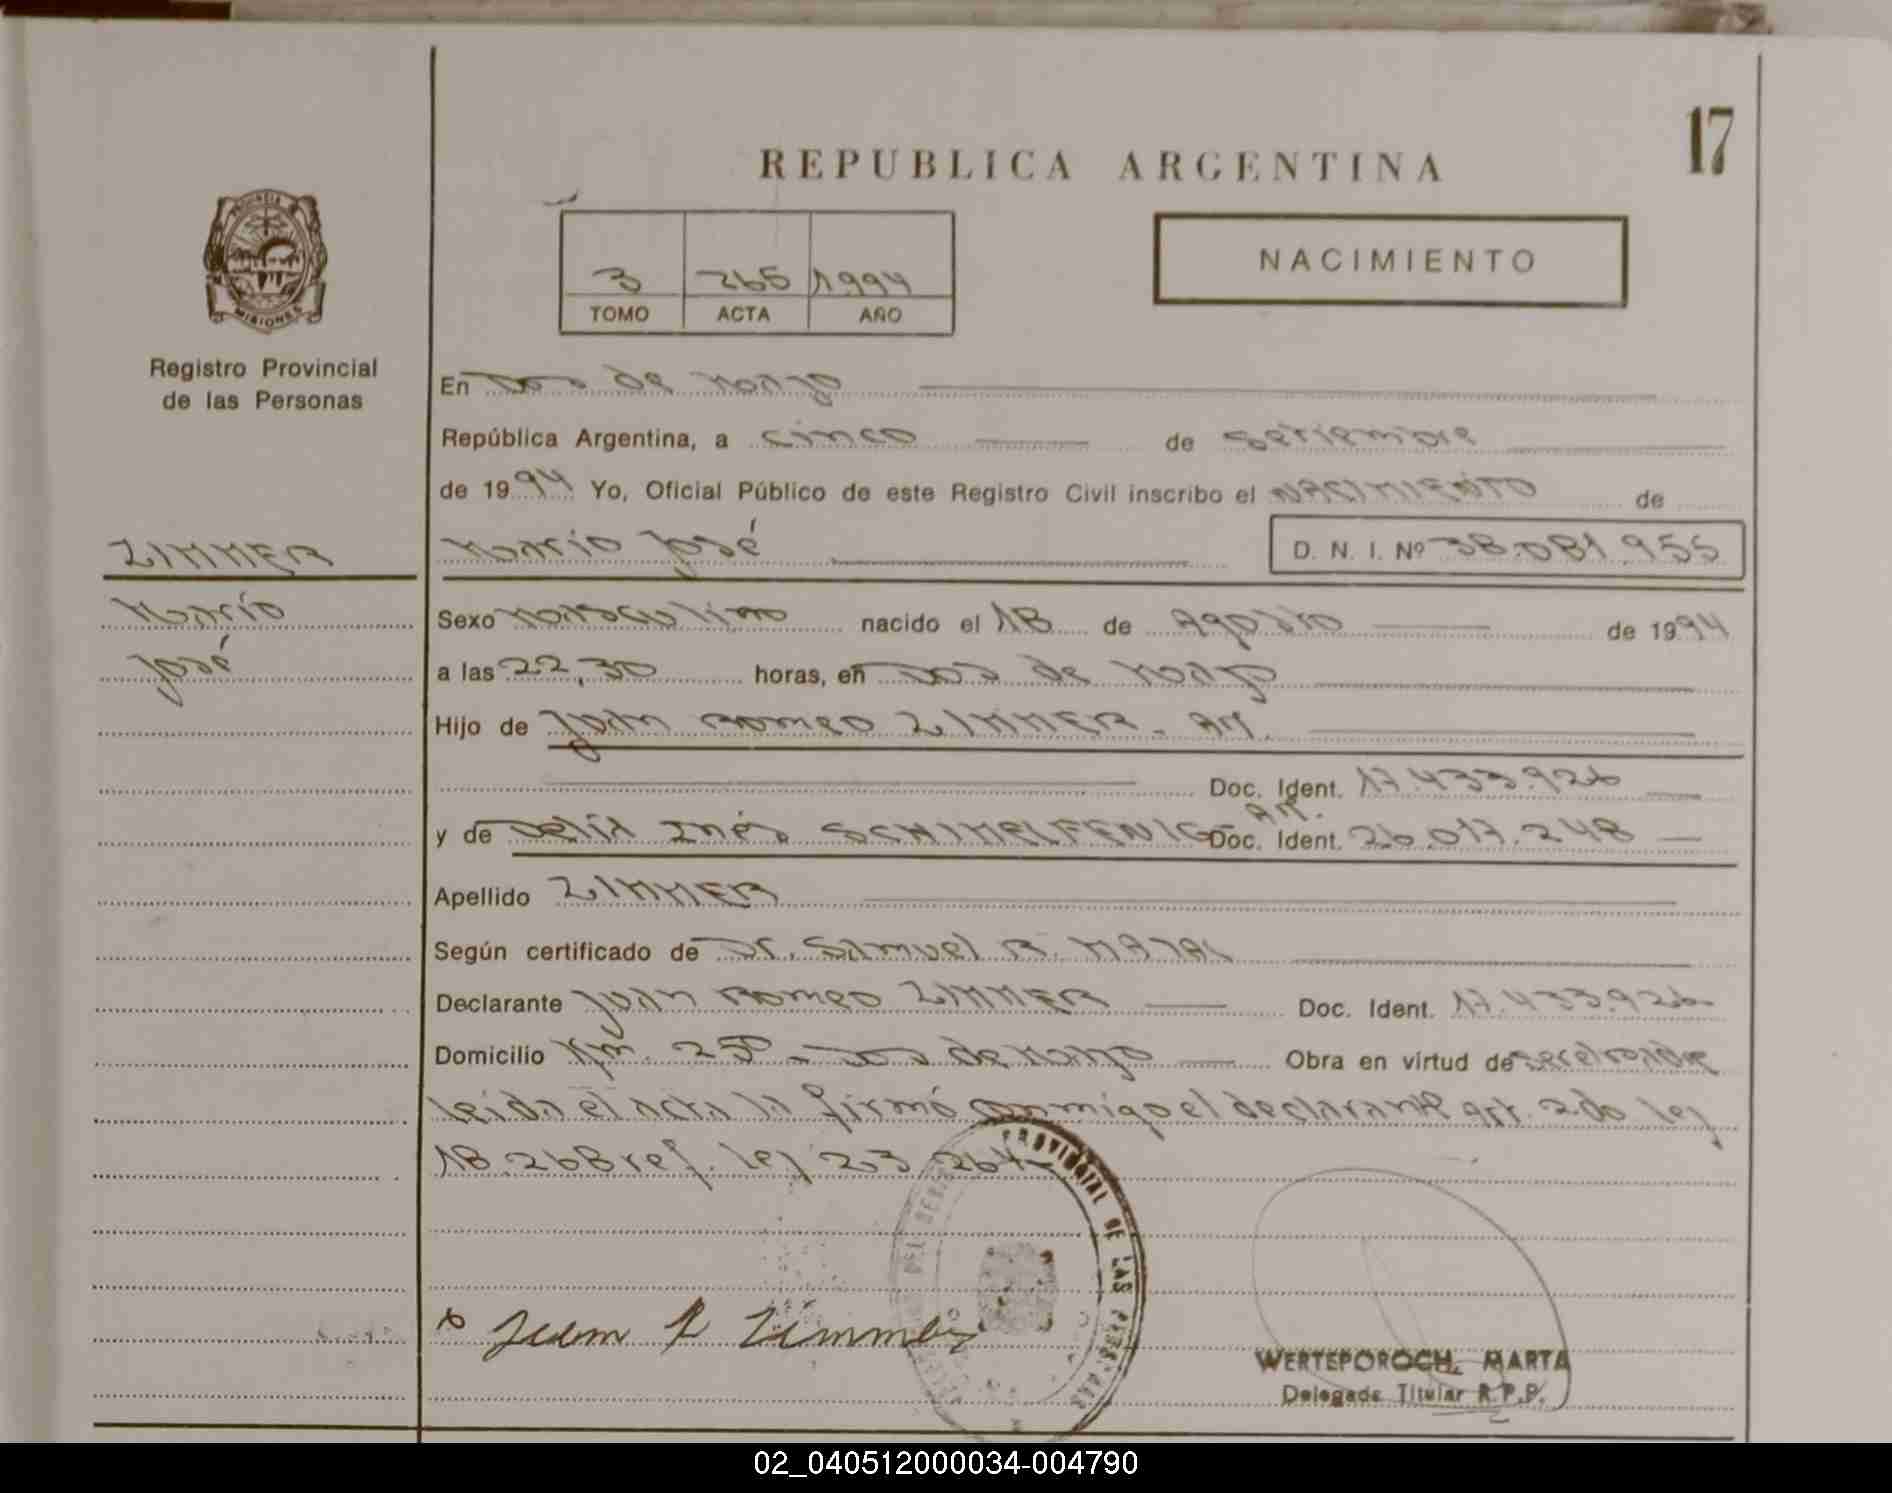 17
REPUBLICA ARGENTINA
PROVINCIA DE
MISIONES
3 265 1994
TOMO ACTA AÑO
NACIMIENTO
Registro Provincial
de las Personas
En Dos de Mayo
República Argentina, a cinco de setiembre
de 1994 Yo, Oficial Público de este Registro Civil inscribo el NACIMIENTO de
ZIMMER
Mario José D. N. I. Nº 38.081.955
Mario
José
Sexo Masculino nacido el 18 de Agosto de 1994
a las 22,30 horas, en Dos de Mayo
Hijo de Juan Romeo ZIMMER - AM.
Doc. Ident. 17.433.926
y de Delia Inés SCHIMELFENIG - AM. Doc. Ident. 26.017.248
Apellido ZIMMER
Según certificado de Dr. Samuel R.
Declarante Juan Romeo ZIMMER Doc. Ident. 17.433.926
Domicilio Km. 250 - Dos de Mayo Obra en virtud de ser el padre
leída el acta la firmó conmigo el declarante art. 2do ley
18.268 ref. ley 23 264
PROVINCIAL DE LAS PERSONAS
Juan R Zimmer
WERTEPOROCH, MARTA
Delegada Titular R.P.P.
02_040512000034-004790